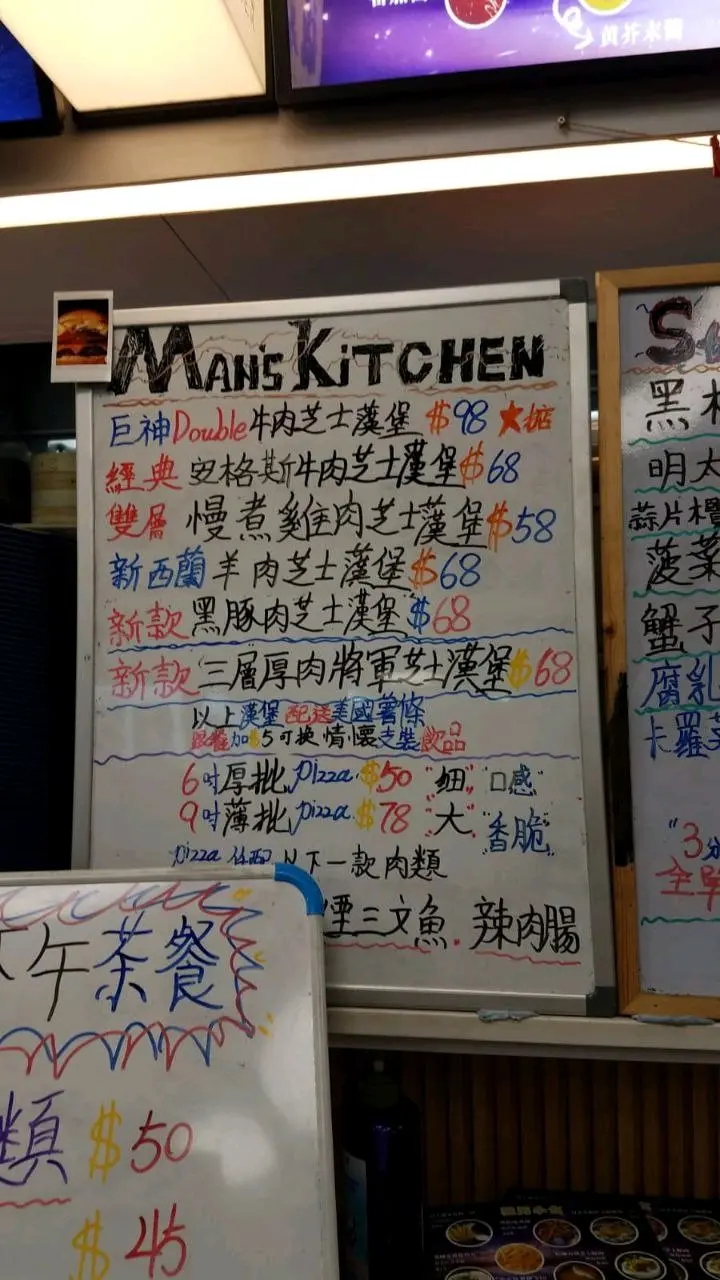 黄芥末醬
MAN'S KiTCHEN
巨神Double牛肉芝士漢堡 $98 ★掂
經典 安格斯牛肉芝士漢堡$68
雙層 慢煮雞肉芝士漢堡$58
新西蘭羊肉芝士漢堡$68
新款黑豚肉芝士漢堡$68
新款三層厚肉將軍芝士漢堡$68
以上漢堡配送美國薯條
跟餐加$5可換情懷支裝飲品
6吋厚批pizza $50 "細" "口感"
9吋薄批pizza $78 "大" "香脆"
pizza 任配以下一款肉類
煙三文魚. 辣肉腸
午茶餐
類 $50
$45
S
黑
明太
蒜片
菠菜
蟹子
腐乳
卡羅
"3分
全單